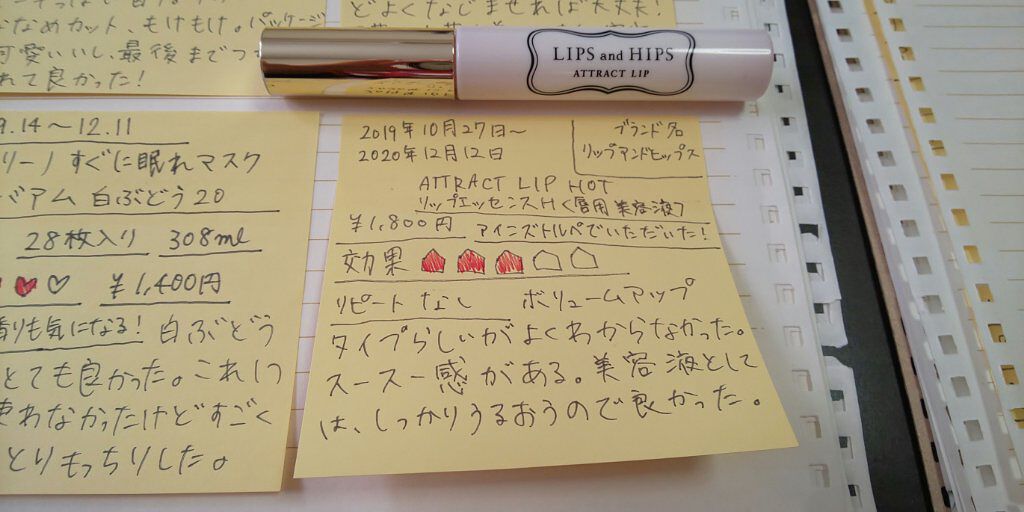 なめカット、もけもけ。パッケージ
可愛いいし、最後までつ
れて良かった!
どよくなじませれば大丈夫!
LIPS and HIPS
ATTRACT LIP
9.14〜12.11
リーノ すぐに眠れマスク
アム 白ぶどう20
28枚入り 308ml
¥1,400円
香りも気になる! 白ぶどう
とても良かった。これ1つ
使わなかったけどすごく
とりもっちりした。
2019年10月27日〜
2020年12月12日
ブランド名
リップアンドヒップス
ATTRACT LIP HOT
リップエッセンスH<唇用美容液>
¥1,800円 アインズトルペでいただいた!
効果
リピートなし ボリュームアップ
タイプらしいがよくわからなかった。
スースー感がある。美容液として
は、しっかりうるおうので良かった。